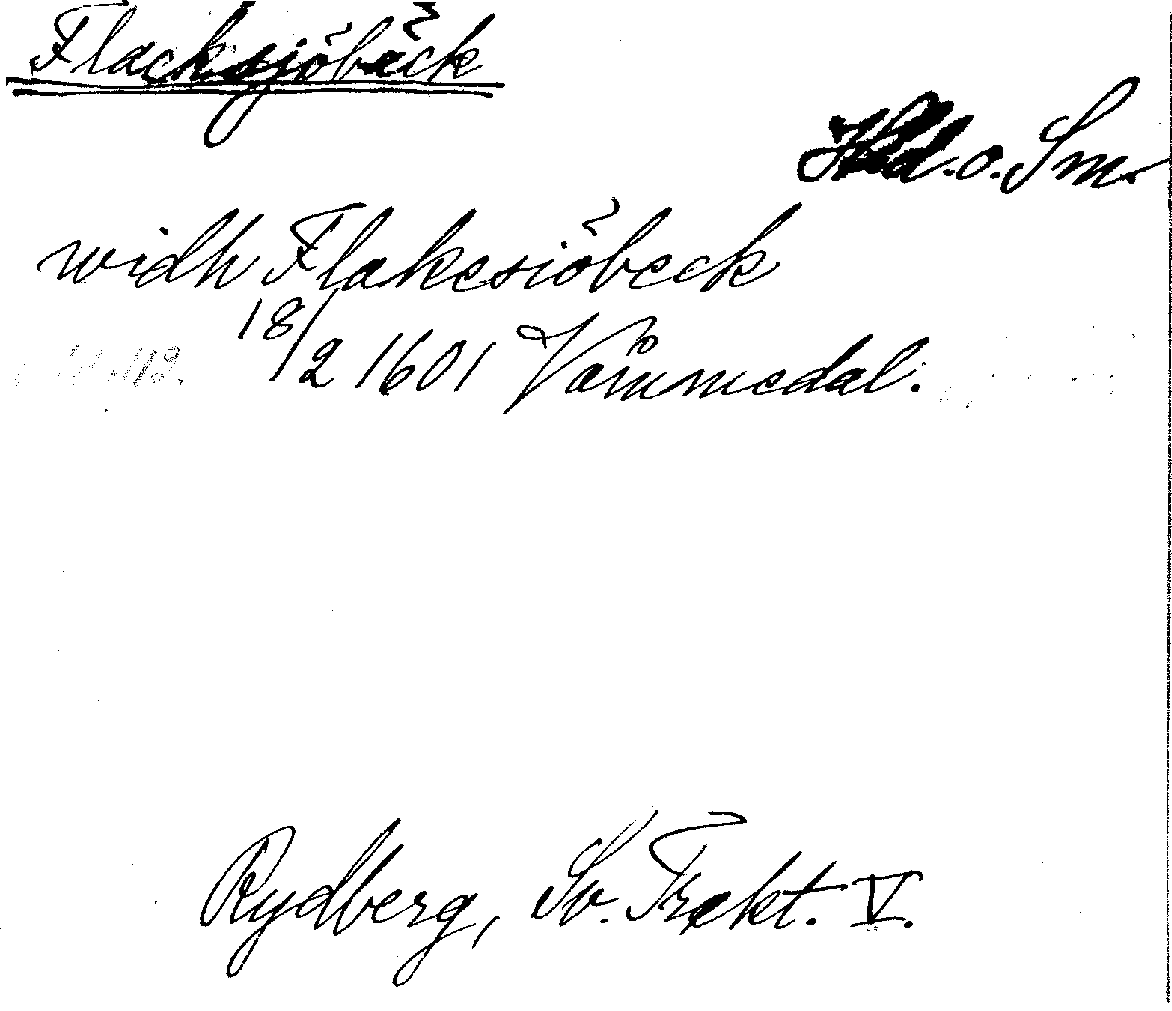 Flacksjöbäck
Hld. o. Sm.
widh Flakesiöbeck
18/2 1601 Våmmedal.
Rydberg, Sv. Trakt. V.